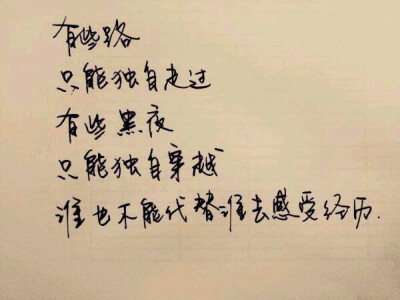 有些路
只能独自走过
有些黑夜
只能独自穿越
谁也不能代替谁去感受经历.